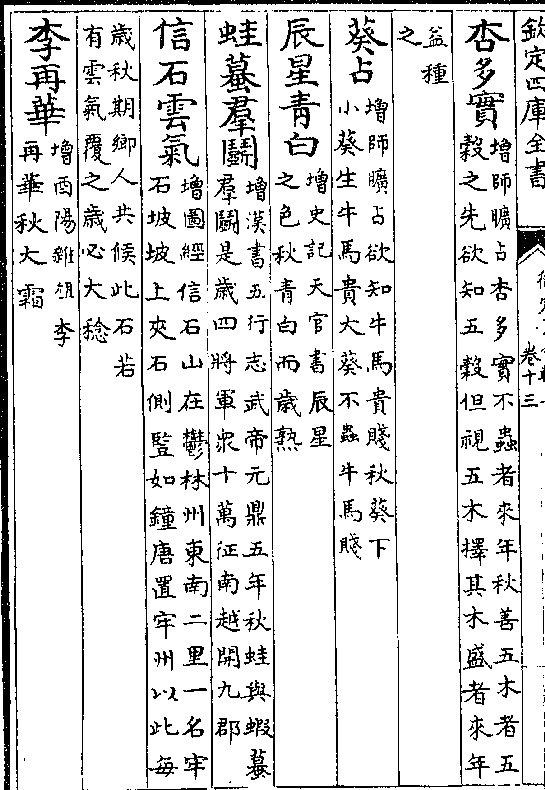 欽定四庫全書
卷十三
杏多實增師曠占杏多實不蟲者來年秋善五木者五
穀之先欲知五穀但視五木擇其木盛者來年
益種
之
葵占增師曠占欲知牛馬貴賤秋葵下
小葵生牛馬貴大葵不蟲牛馬賤
辰星青白增史記天官書辰星
之色秋青白而歲熟
蛙蟇羣鬭增漢書五行志武帝元鼎五年秋蛙與蝦蟇
羣鬭是歲四將軍衆十萬征南越開九郡
信石雲氣增圖經信石山在鬱林州東南二里一名牢
石坡坡上夾石側豎如鐘唐置牢州以此每
歲秋期鄉人共候此石若
有雲氣覆之歲必大稔
李再華增酉陽雜俎李
再華秋大霜